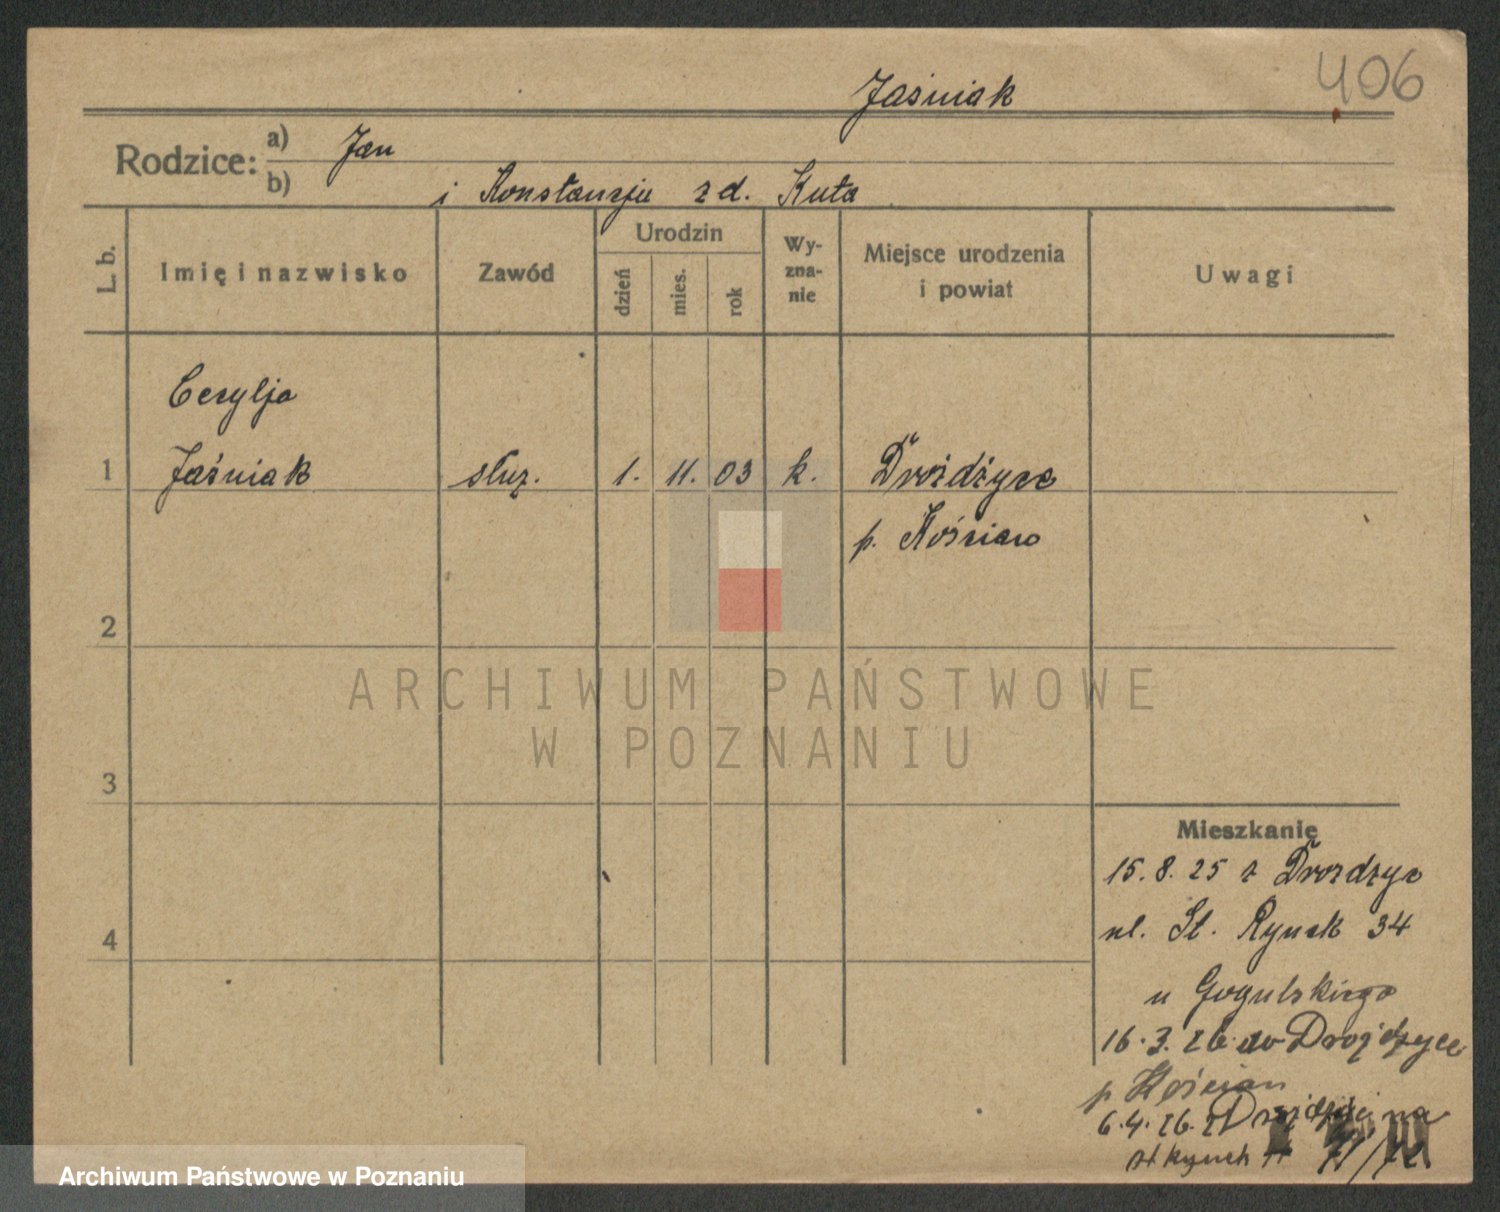 406
Jaśniak
Rodzice: a) Jan
b) i Konstancja zd. Kuta
L. b. Imię i nazwisko Zawód Urodzin dzień mies. rok Wyznanie Miejsce urodzenia i powiat Uwagi
Cecylja
1 Jaśniak służ. 1. 11. 03 k. Drożdżyce
p. Kościan
2
ARCHIWUM PAŃSTWOWE
W POZNANIU
3
Mieszkanie
15. 8. 25 z Drożdżyc
4 ul. St. Rynek 34
u Gogulskiego
16. 3. 26. do Drożdżyce
p Kościan
6. 4. 26. z na
St Rynek
Archiwum Państwowe w Poznaniu